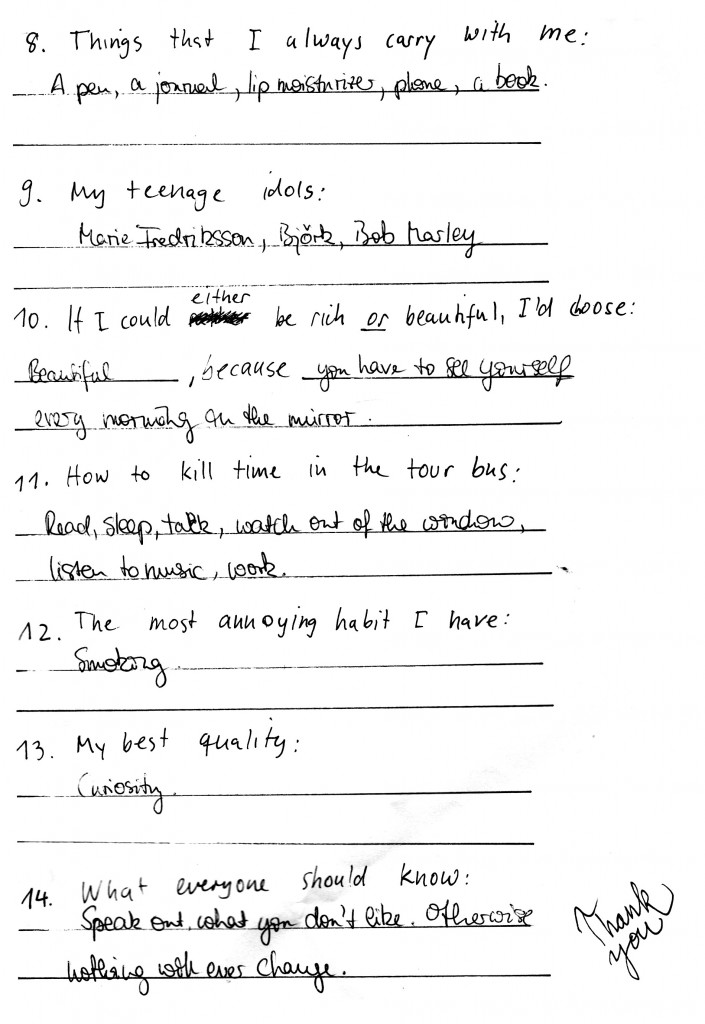 8. Things that I always carry with me:
A pen, a journal, lip moisturizer, phone, a book.
9. My teenage idols:
Marie Fredriksson, Björk, Bob Marley
either
10. If I could be rich or beautiful, I'd choose:
Beautiful, because you have to see yourself
every morning in the mirror.
11. How to kill time in the tour bus:
Read, sleep, talk, watch out of the window,
listen to music, work.
12. The most annoying habit I have:
Smoking.
13. My best quality:
Curiosity.
14. What everyone should know:
Speak out, what you don't like. Otherwise
nothing will ever change.
Thank
you